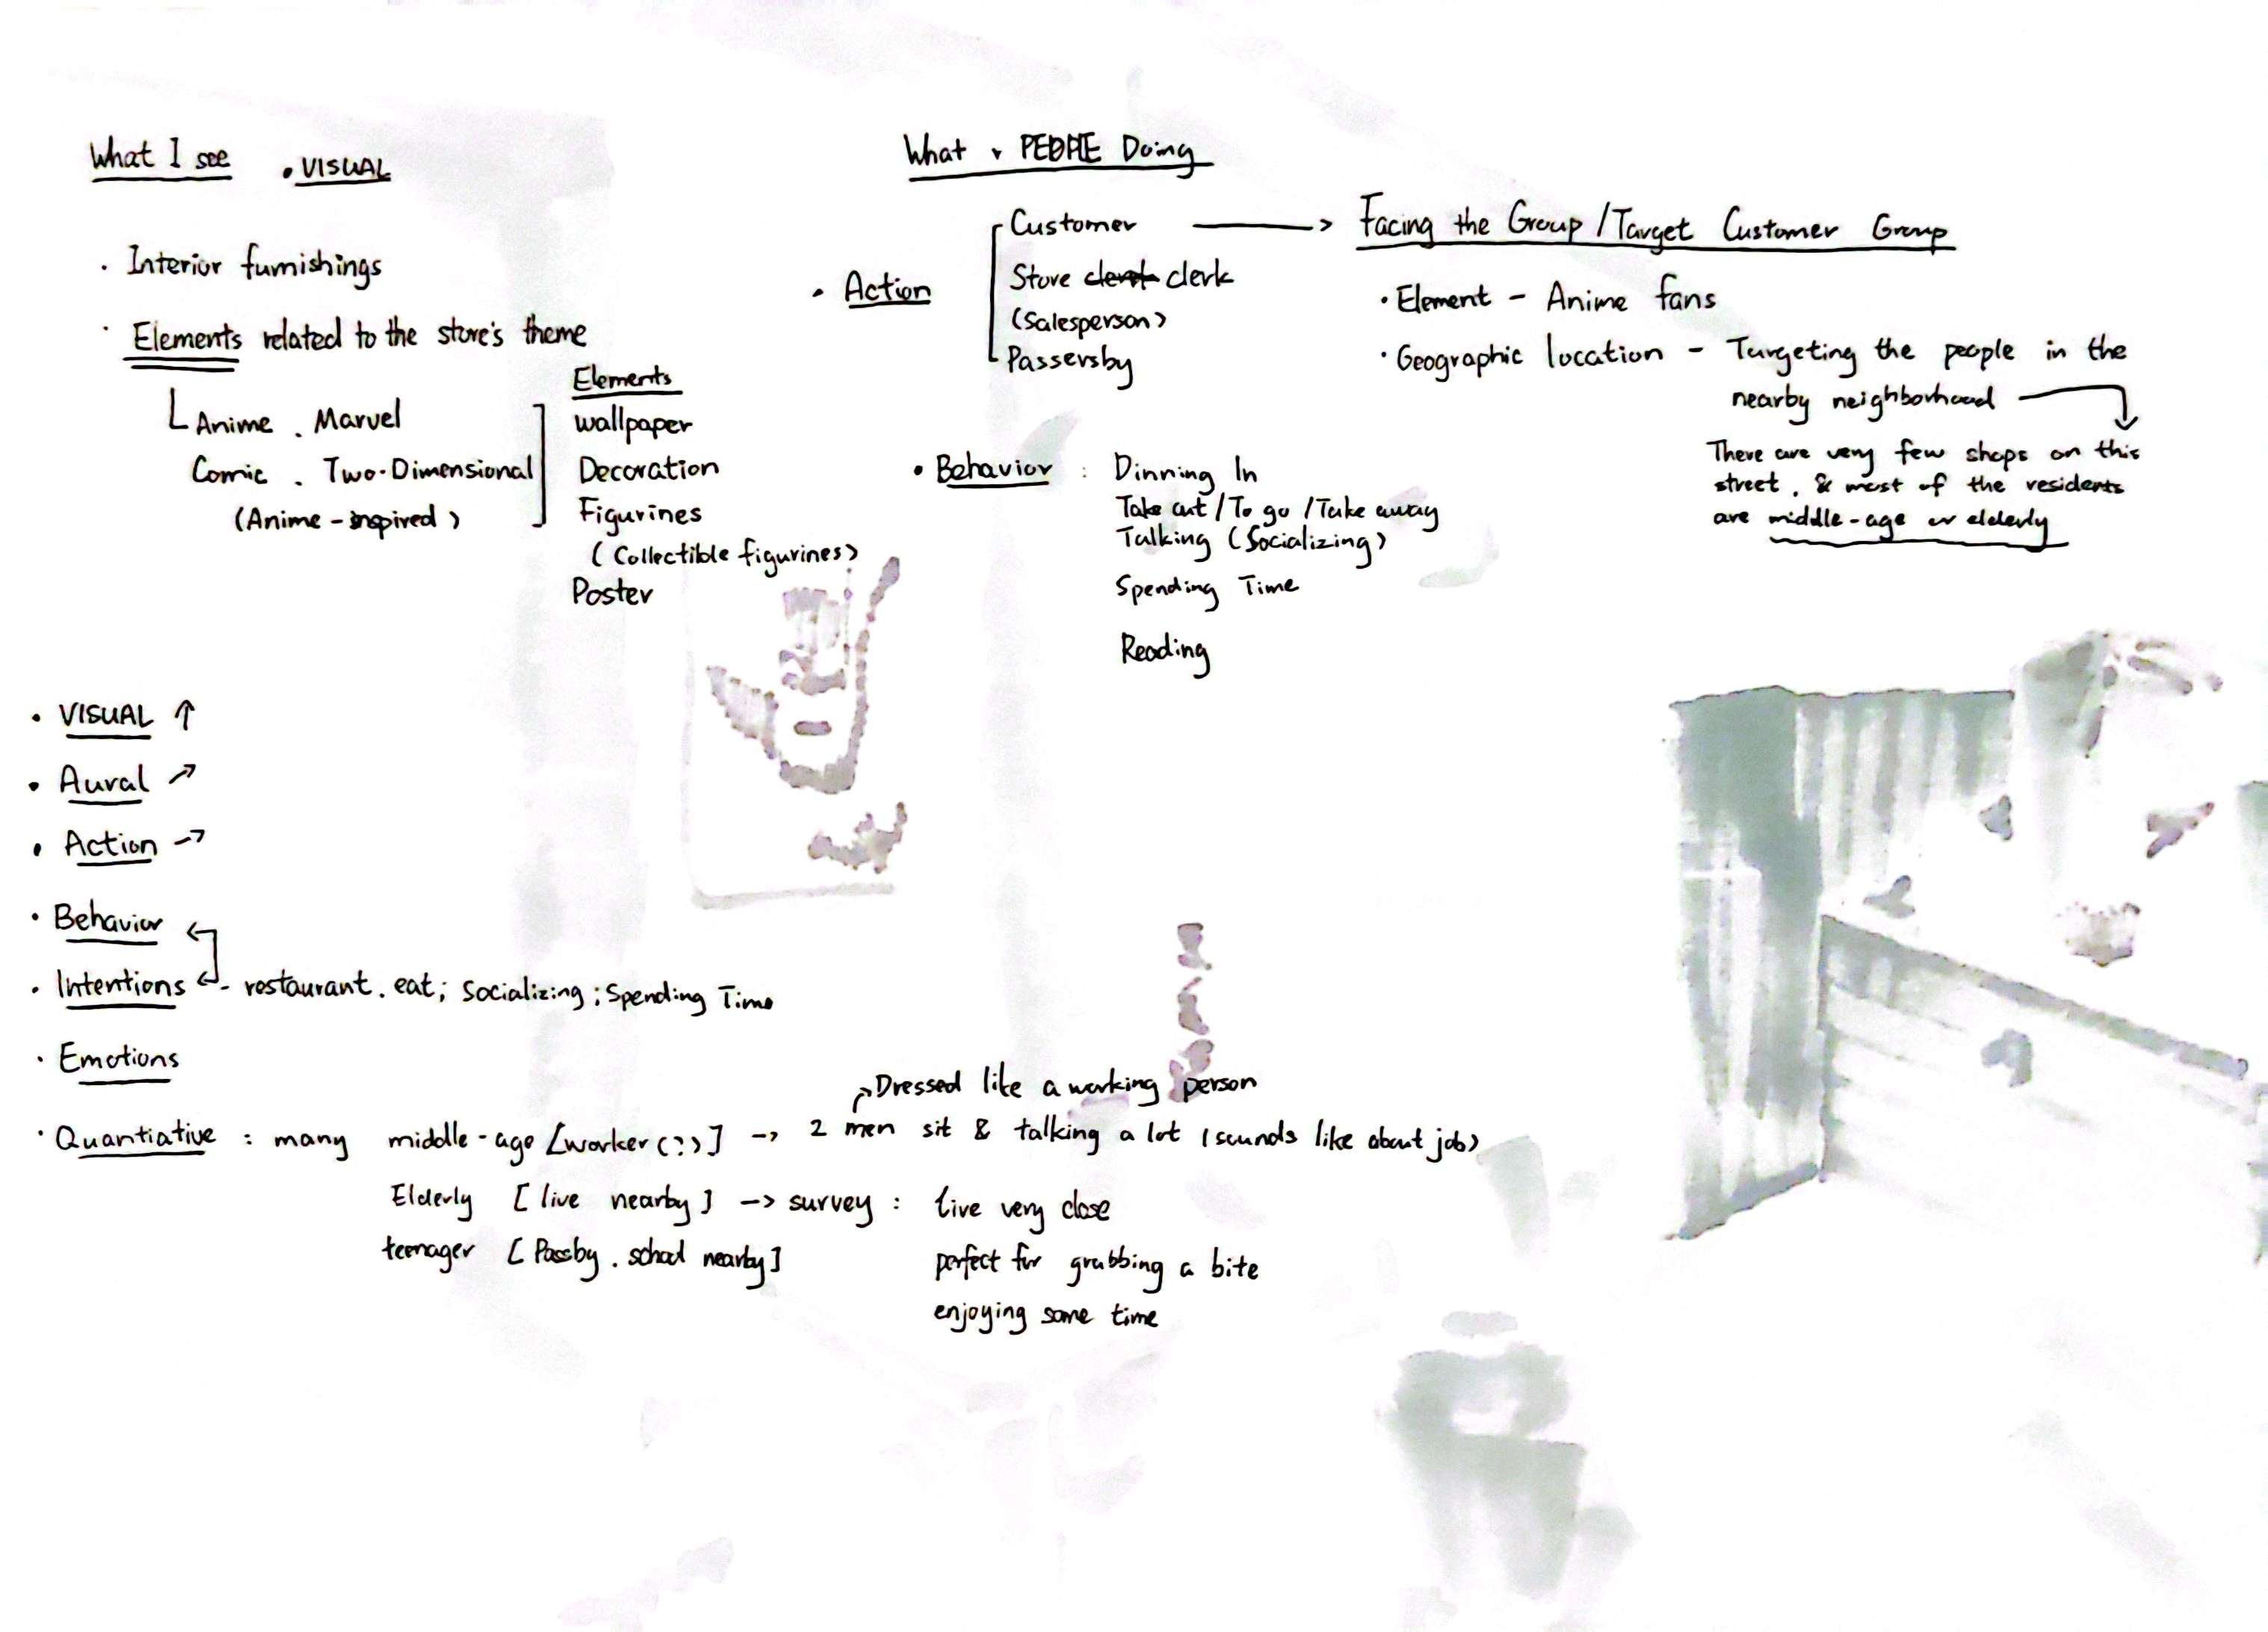 What I see • VISUAL
· Interior furnishings
· Elements related to the store's theme
Anime . Marvel
Comic . Two-Dimensional
(Anime-inspired)
Elements
wallpaper
Decoration
Figurines
(Collectible figurines)
Poster
What PEOPLE Doing
• Action
Customer
Store clerk
(Salesperson)
Passersby
→ Facing the Group / Target Customer Group
• Element - Anime fans
• Geographic location - Targeting the people in the
nearby neighborhood
There are very few shops on this
street, & most of the residents
are middle-age or elderly
• Behavior : Dinning In
Take out / To go / Take away
Talking (Socializing)
Spending Time
Reading
• VISUAL ↑
• Aural ↗
• Action →
• Behavior
• Intentions - restaurant. eat; Socializing; Spending Time
• Emotions
• Quantiative : many middle-age [worker(?)] → 2 men sit & talking a lot (sounds like about job)
Dressed like a working person
Elderly [live nearby] → survey : live very close
teenager [Passby . school nearby]
perfect for grabbing a bite
enjoying some time